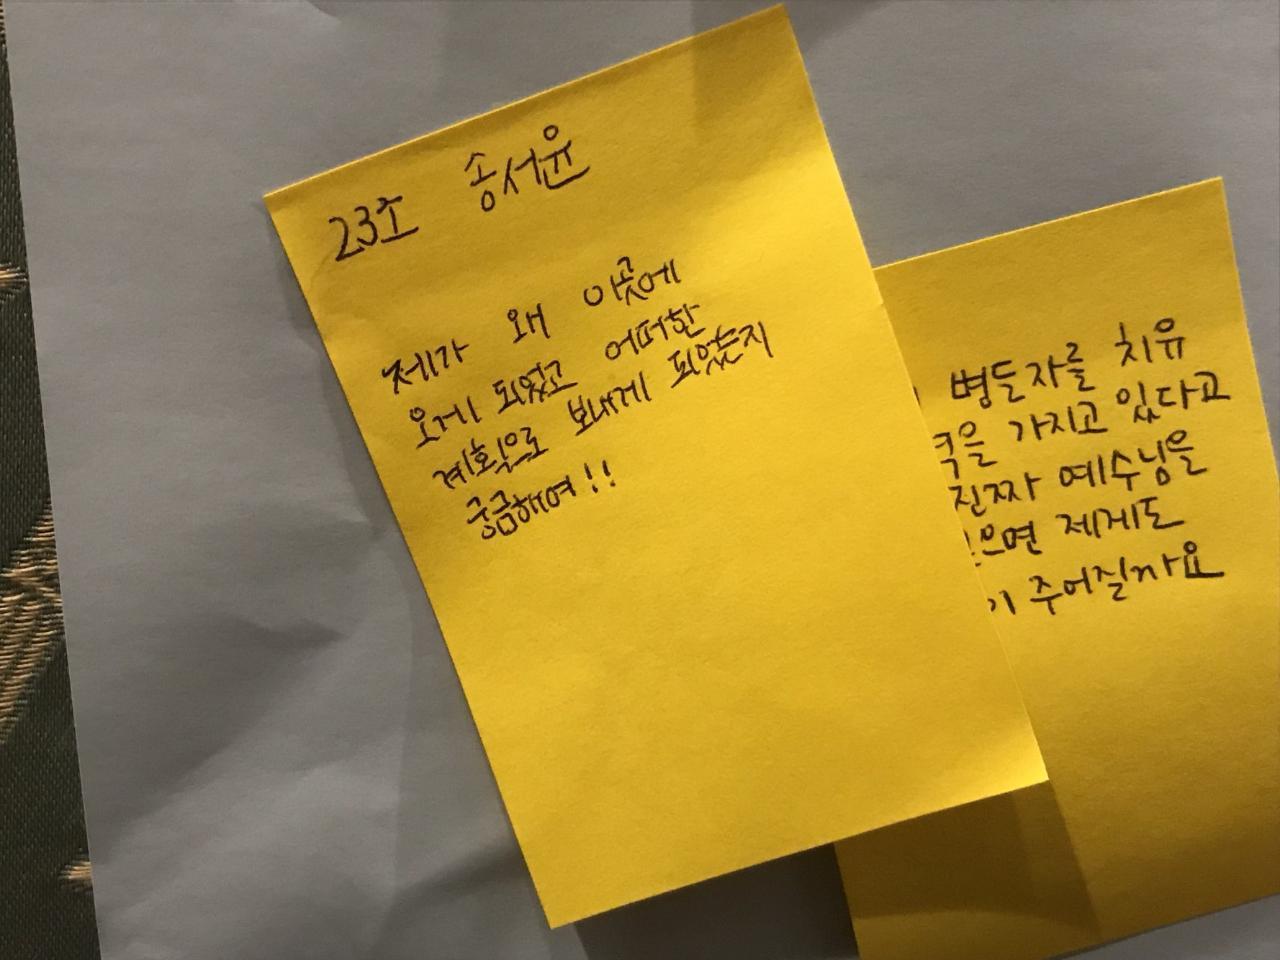 23조 송서윤
제가 왜 이곳에
오게 되었고 어떠한
계획으로 보내게 되었는지
궁금해여!!
병든자를 치유
을 가지고 있다고
진짜 예수님을
으면 제게도
이 주어질까요